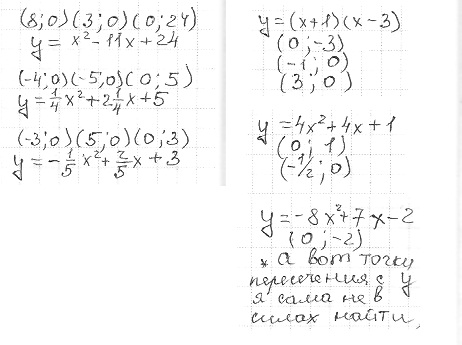 (8;0)(3;0)(0;24)
y = x² - 11x + 24
(-4;0)(-5;0)(0;5)
y = 1/4 x² + 2 1/4 x + 5
(-3;0)(5;0)(0;3)
y = - 1/5 x² + 2/5 x + 3
y = (x+1)(x-3)
(0;-3)
(-1;0)
(3;0)
y = 4x² + 4x + 1
(0;1)
(-1/2;0)
y = -8x² + 7x - 2
(0;-2)
* а вот точку
пересечения с y
я сама не в
силах найти.